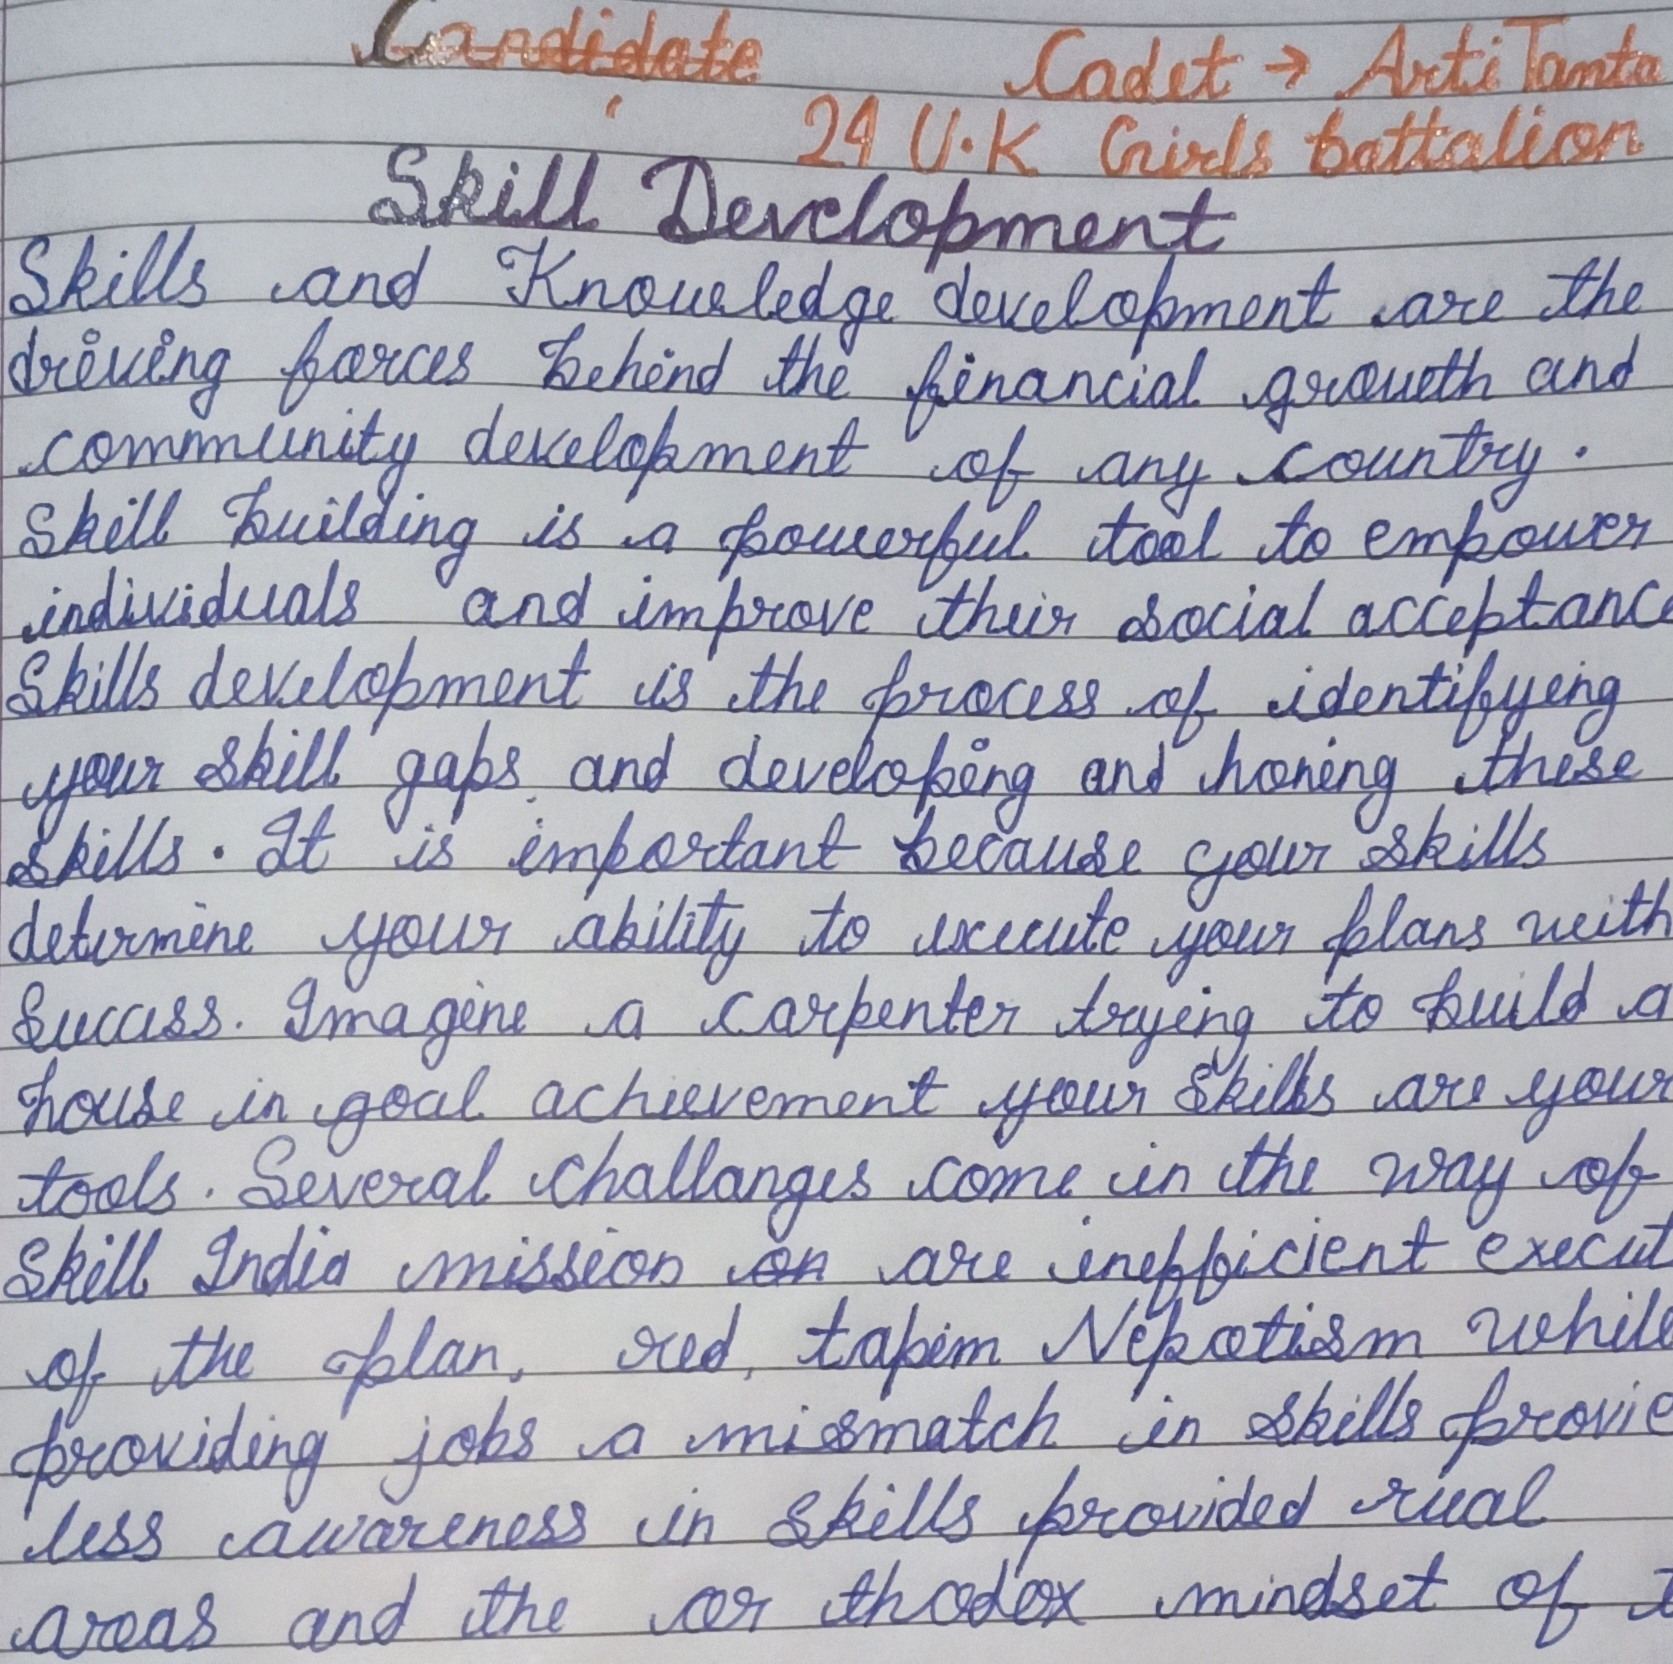 Candidate Cadet → Arti Tamta
24 U.K Girls battalion
Skill Development
Skills and Knowledge development are the
driving forces behind the financial growth and
community development of any country.
Skill building is a powerful tool to empower
individuals and improve their social acceptance
Skills development is the process of identifying
your skill gaps and developing and honing these
skills. It is important because your skills
determine your ability to execute your plans with
Success. Imagine a carpenter trying to build a
house in goal achievement your Skills are your
tools. Several challanges come in the way of
Skill India mission on are inefficient execut
of the plan, red, tapim Nepotism while
providing jobs a mismatch in skills provie
less awareness in skills provided rual
areas and the or thodox mindset of t